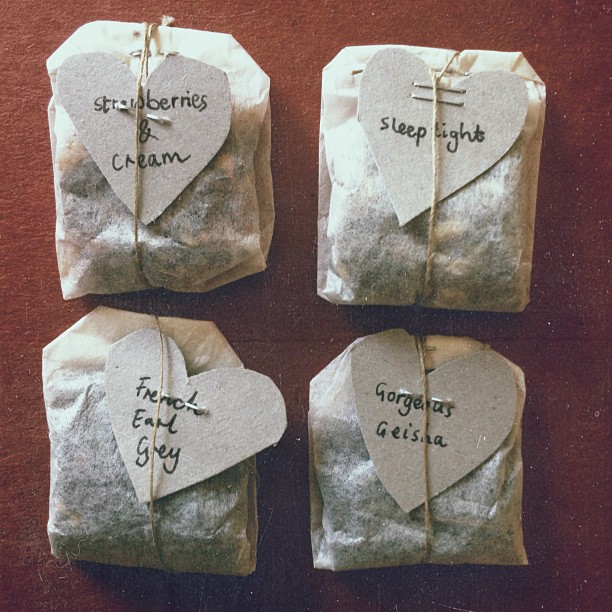 strawberries
&
cream
sleep tight
French
Earl
Grey
Gorgeous
Geisha